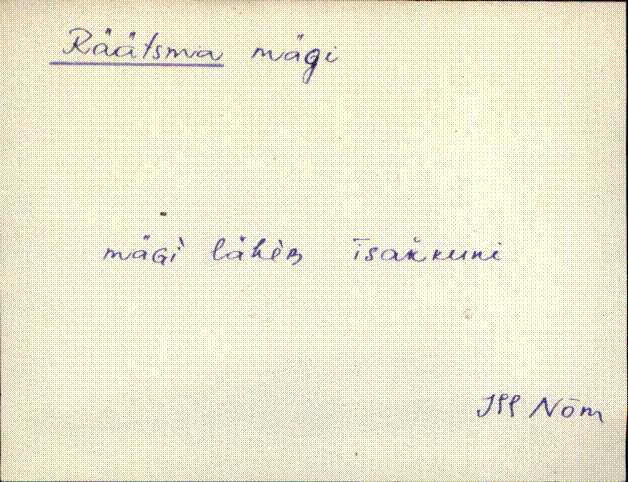 Räätsma mägi
mäGì lähèB īsaḱkuni
JII Nõm